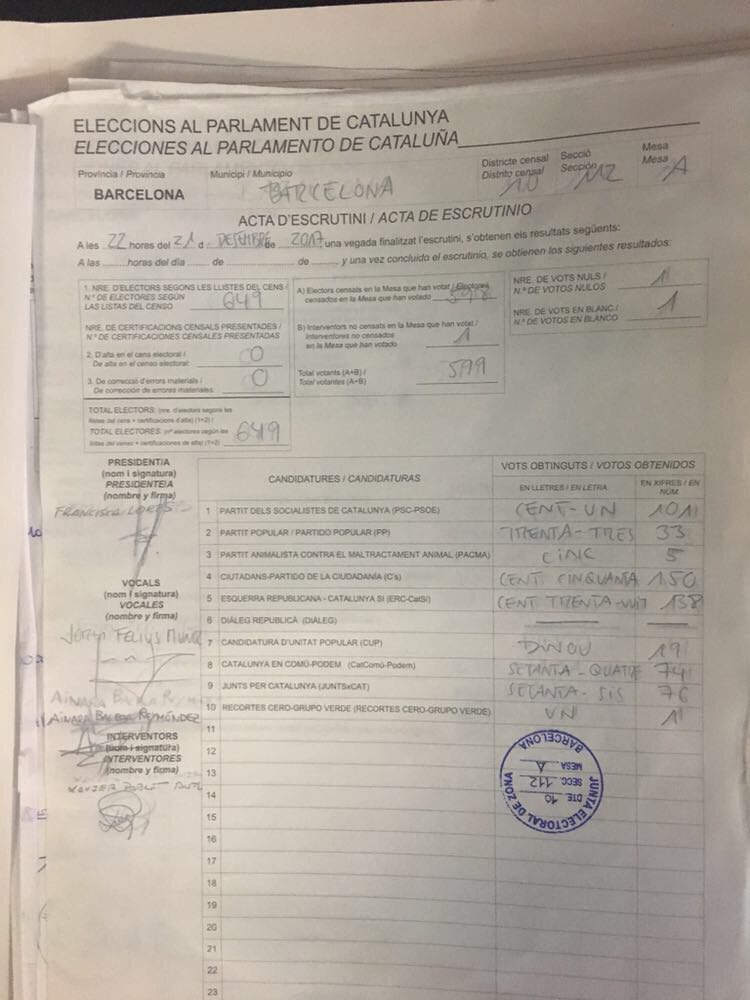 ELECCIONS AL PARLAMENT DE CATALUNYA
ELECCIONES AL PARLAMENTO DE CATALUÑA
Província / Provincia
BARCELONA
Municipi / Municipio
BARCELONA
Districte censal
Distrito censal
10
Secció
Sección
112
Mesa
Mesa
A
ACTA D'ESCRUTINI / ACTA DE ESCRUTINIO
A les 22 hores del 21 d DESEMBRE de 2017 una vegada finalitzat l'escrutini, s'obtenen els resultats següents:
A las ........ horas del día ........ de ........ de ........, y una vez concluido el escrutinio, se obtienen los siguientes resultados:
1. NRE. D'ELECTORS SEGONS LES LLISTES DEL CENS /
N.º DE ELECTORES SEGÚN
LAS LISTAS DEL CENSO
649
NRE. DE CERTIFICACIONS CENSALS PRESENTADES /
N.º DE CERTIFICACIONES CENSALES PRESENTADAS
2. D'alta en el cens electoral /
De alta en el censo electoral:
0
3. De correcció d'errors materials /
De corrección de errores materiales:
0
TOTAL ELECTORS: (nre. d'electors segons les
llistes del cens + certificacions d'alta) (1+2) /
TOTAL ELECTORES: (nº electores según las
listas del censo + certificaciones de alta) (1+2)
649
A) Electors censats en la Mesa que han votat / Electores
censados en la Mesa que han votado
598
B) Interventors no censats en la Mesa que han votat /
Interventores no censados
en la Mesa que han votado
1
Total votants (A+B) /
Total votantes (A+B)
599
NRE. DE VOTS NULS /
N.º DE VOTOS NULOS
1
NRE. DE VOTS EN BLANC /
N.º DE VOTOS EN BLANCO
1
PRESIDENT/A
(nom i signatura)
PRESIDENTE/A
(nombre y firma)
VOCALS
(nom i signatura)
VOCALES
(nombre y firma)
INTERVENTORS
(nom i signatura)
INTERVENTORES
(nombre y firma)
CANDIDATURES / CANDIDATURAS
VOTS OBTINGUTS / VOTOS OBTENIDOS
EN LLETRES / EN LETRA
EN XIFRES / EN NÚM.
1 PARTIT DELS SOCIALISTES DE CATALUNYA (PSC-PSOE) CENT-UN 101
2 PARTIT POPULAR / PARTIDO POPULAR (PP) TRENTA-TRES 33
3 PARTIT ANIMALISTA CONTRA EL MALTRACTAMENT ANIMAL (PACMA) CINC 5
4 CIUTADANS-PARTIDO DE LA CIUDADANÍA (C's) CENT CINQUANTA 150
5 ESQUERRA REPUBLICANA - CATALUNYA SÍ (ERC-CatSí) CENT TRENTA-VUIT 138
6 DIÀLEG REPUBLICÀ (DIÀLEG)
7 CANDIDATURA D'UNITAT POPULAR (CUP) DINOU 19
8 CATALUNYA EN COMÚ-PODEM (CatComú-Podem) SETANTA-QUATRE 74
9 JUNTS PER CATALUNYA (JUNTSxCAT) SETANTA-SIS 76
10 RECORTES CERO-GRUPO VERDE (RECORTES CERO-GRUPO VERDE) UN 1
11
12
13
14
15
16
17
18
19
20
21
22
23
JUNTA ELECTORAL DE ZONA
BARCELONA
DTE. 10
SECC 112
MESA A